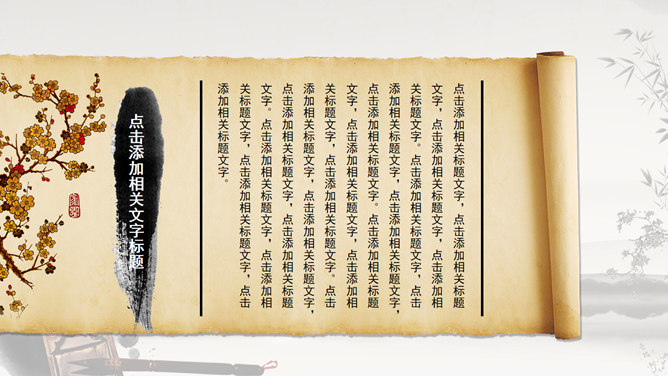 点击添加相关标题文字，点击添加相关标题
文字，点击添加相关标题文字，点击添加相
关标题文字。点击添加相关标题文字，点击
添加相关标题文字，点击添加相关标题文字，
点击添加相关标题文字。点击添加相关标题
文字，点击添加相关标题文字，点击添加相
关标题文字，点击添加相关标题文字。点击
添加相关标题文字，点击添加相关标题文字，
点击添加相关标题文字，点击添加相关标题
文字。点击添加相关标题文字，点击添加相
关标题文字，点击添加相关标题文字，点击
添加相关标题文字。
点击添加相关文字标题